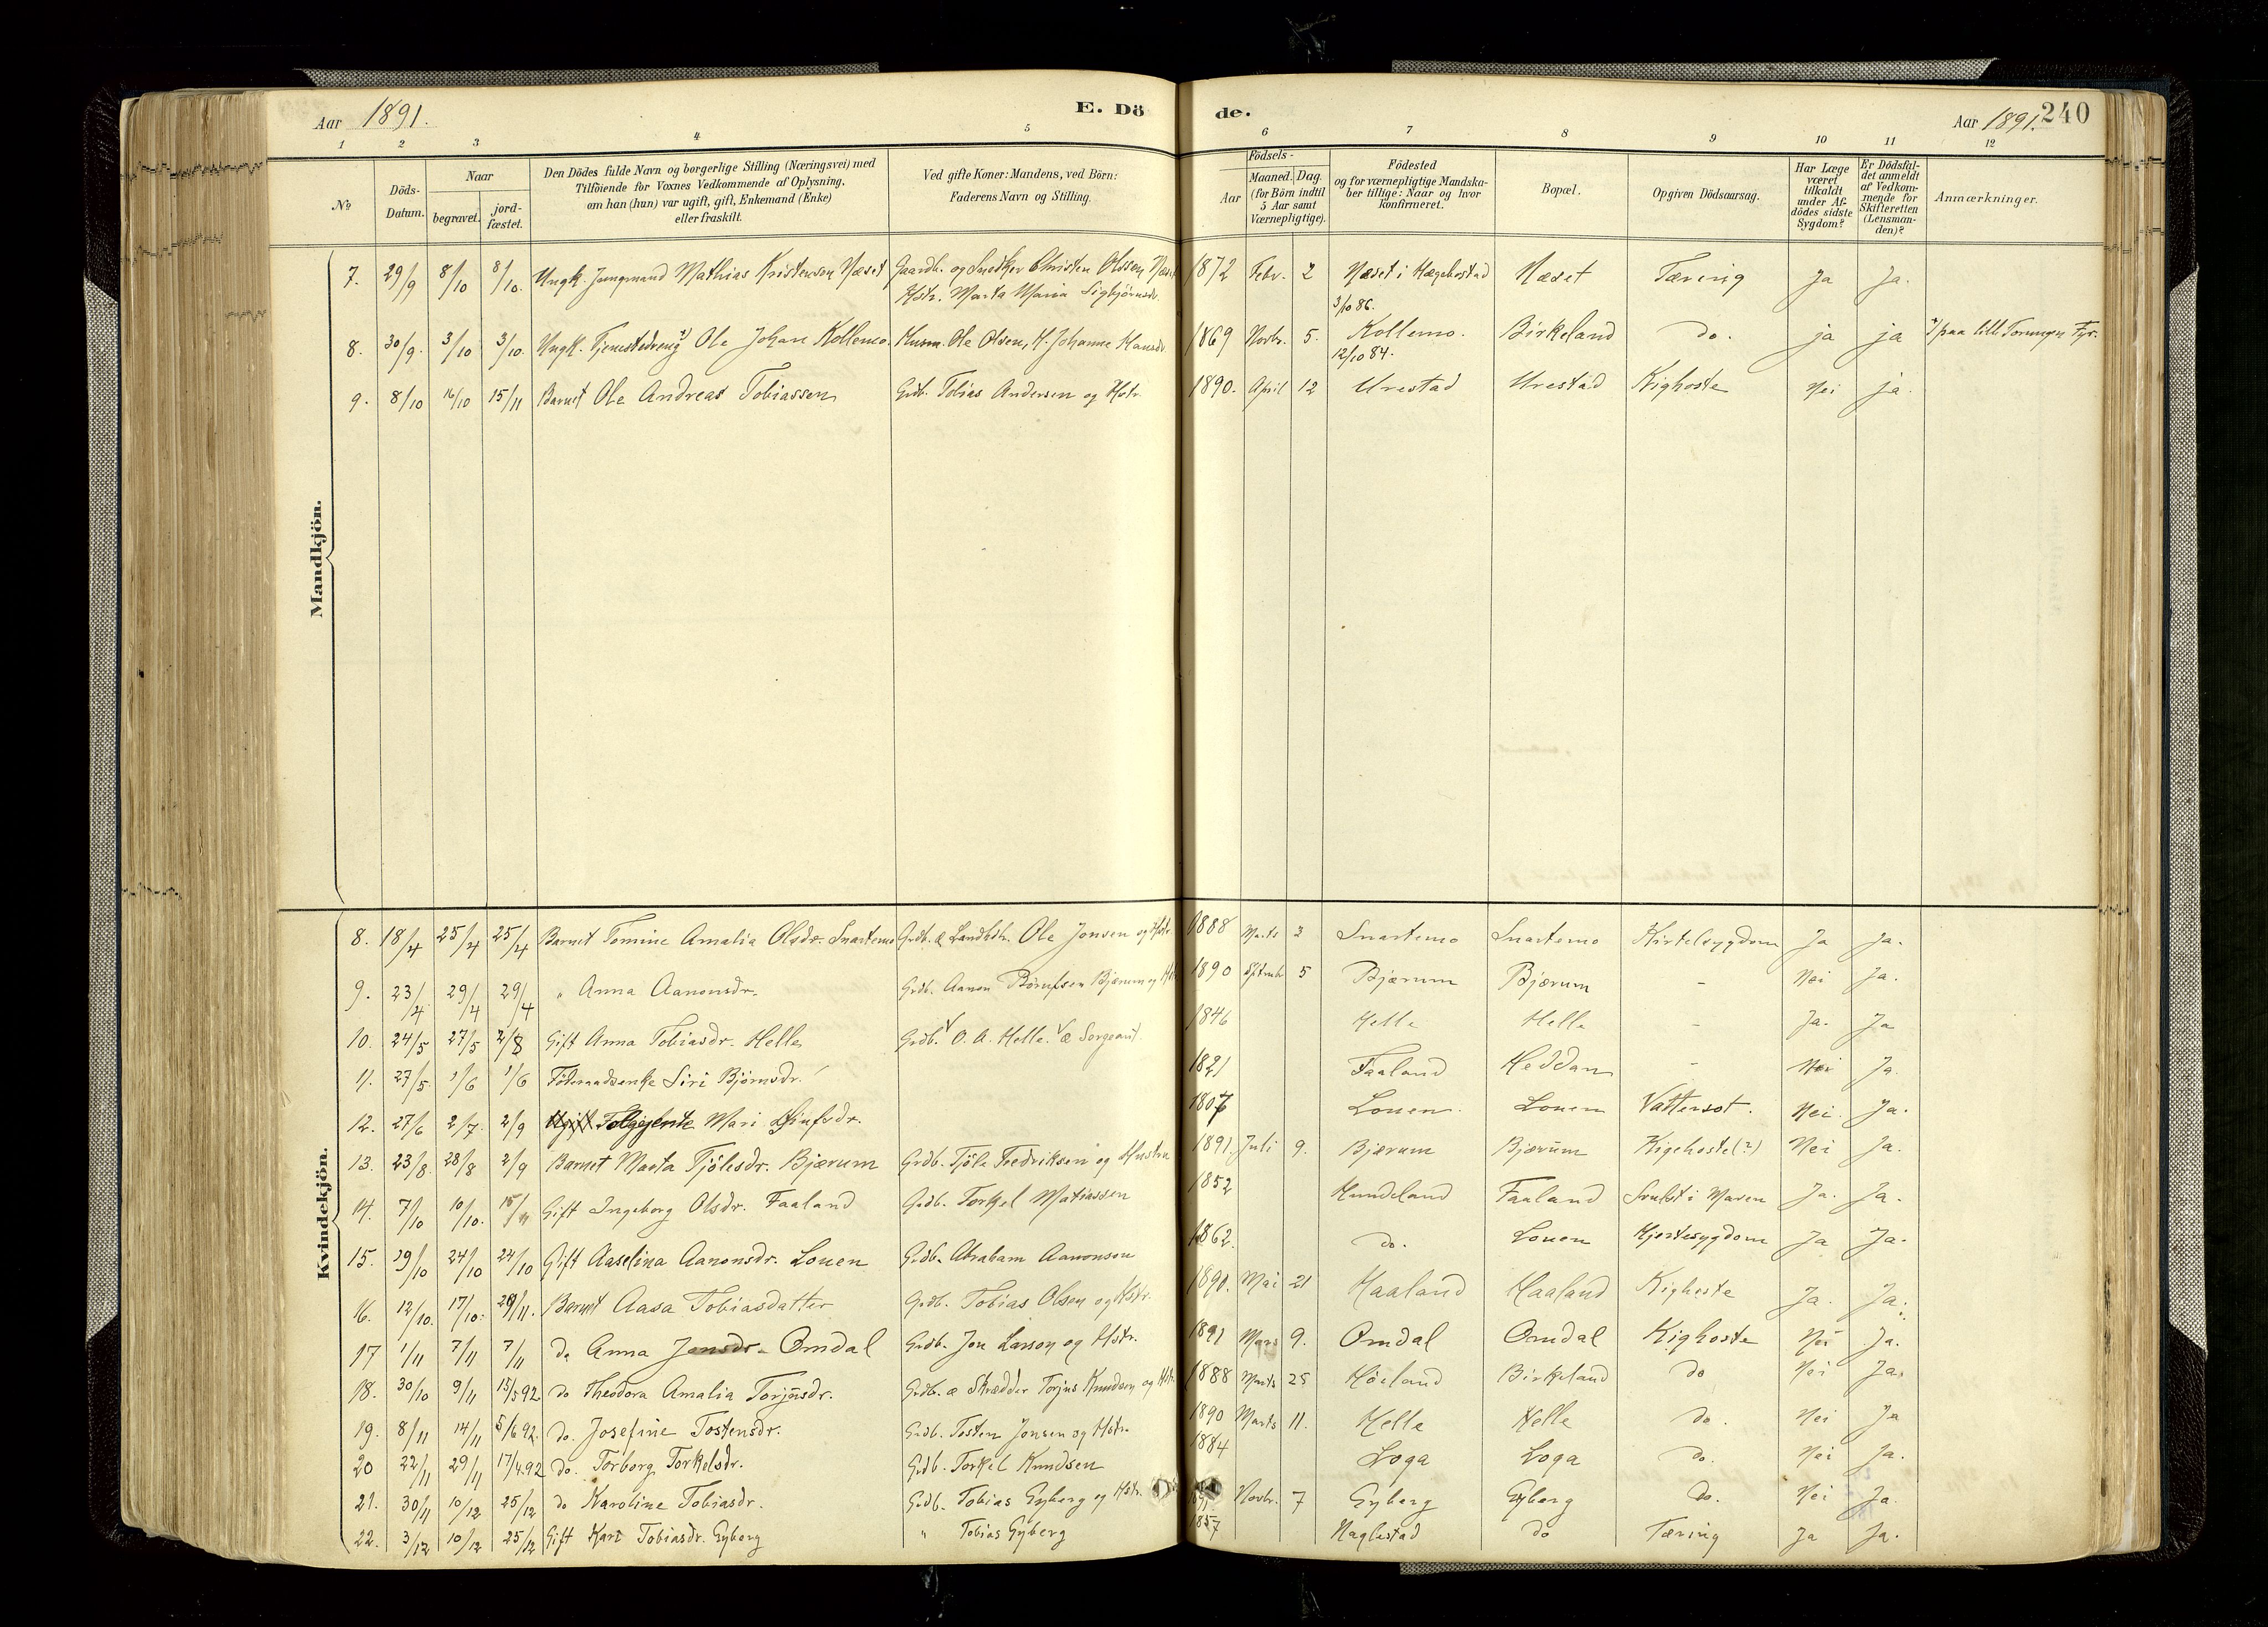 Aar 1891.
E. Dö
de.
Aar 1891.
240
1 2 3 4 5 6 7 8 9 10 11 12
No.
Döds-Datum.
Naar
begravet.
jord-fæstet.
Den Dödes fulde Navn og borgerlige Stilling (Næringsvei) med
Tilföiende for Voxnes Vedkommende af Oplysning,
om han (hun) var ugift, gift, Enkemand (Enke)
eller fraskilt.
Ved gifte Koner: Mandens, ved Börn:
Faderens Navn og Stilling.
Födsels-
Aar
Maaned. Dag.
(for Börn indtil
5 Aar samt
Værnepligtige).
Födested
og for værnepligtige Mandska-
ber tillige: Naar og hvor
konfirmeret.
Bopæl.
Opgiven Dödsaarsag.
Har Læge
været
tilkaldt
under Af-
dödes sidste
Sygdom?
Er Dödsfal-
det anmeldt
af Vedkom-
mende for
Skifteretten
(Lensman-
den)?
Anmærkninger.
Mandkjön.
7. 29/9 8/10 8/10. Ungk. Jungmand Mathias Kristensen Næset Gaardb. og Snedker Christen Olssen Næset 1872 Febr. 2 Næset i Hægebostad Næset Tæring Ja Ja.
Hstr. Marta Maria Sigbjørnsdr. 3/10 86.
8. 30/9. 3/10 3/10. Ungk. Tjenestedreng *) Ole Johan Kollemo Husm. Ole Olsen, H. Johanne Hansdr 1869 Novbr. 5. Kollemo. Birkeland do. ja ja *) paa lille Torungen Fyr.
12/10 84.
9. 8/10 16/10 15/11 Barnet Ole Andreas Tobiassen Grdb. Tobias Andersen og Hstr. 1890. April 12 Urestad Urestad Kighoste Nei ja.
Kvindekjön.
8. 18/4 25/4 25/4 Barnet Tomine Amalia Olsdr. Snartemo Grdb. & Landhdlr. Ole Jonsen og Hstr. 1888 Marts 2 Snartemo Snartemo Kirtelsygdom Ja Ja.
9. 23/4 29/4 29/4 " Anna Aanonsdr. Grdb. Aanon Børufsen Bjærum og Hstr 1890 Sptmbr 5 Bjærum Bjærum - Nei Ja.
10. 24/5 27/5 2/8 Gift Anna Tobiasdr. Helle Grdb. O. A. Helle. & Sergeant. 1846 Helle Helle - Ja. Ja
11. 27/5 1/6 1/6 Föderaadsenke Siri Bjørnsdr. 1821 Faaland Heddan - Nei Ja.
12. 27/6 2/7. 2/9 Ugift Tolgejente Mari dr. 1807 Louen. Louen Vattersot. Nei. Ja.
13. 23/8. 28/8 2/9 Barnet Marta Tjölesdr. Bjærum Grdb. Tjöle Fredriksen og Hustru 1891. Juli 9. Bjærum Bjærum Kigehoste(?) Nei Ja.
14. 7/10 10/10. 15/11 Gift Ingeborg Olsdr. Faaland Grdb. Torkel Matiassen 1852 Hundeland Faaland Svulst i Maven Ja. Ja.
15. 19/10 24/10 24/10 Gift Aaselina Aanonsdr. Louen Grdb. Abraham Aanonson 1862. do. Louen Hjertesygdom Ja Ja.
16. 12/10. 17/10. 29/11. Barnet Aasa Tobiasdatter Grdb. Tobias Olsen og Hstr. 1890. Mai 21 Haaland Haaland Kighoste Ja. Ja.
17 1/11 7/11 7/11 do Anna Jonsdr. Omdal Grdb. Jon Larson og Hstr. 1891 Mars 9. Omdal Omdal Kighoste Nei Ja.
18. 30/10 9/11 15/5 92 do Theodora Amalia Torjusdr. Grdb. & Skrædder Torjus Knudsen og Hstr. 1888 Marts 25 Höeland Birkeland do Nei Ja.
19. 8/11 14/11 5/6 92. do. Josefine Tostensdr. Grdb. Tosten Jonsen og Hstr. 1890 Marts 11. Helle Helle do. Nei Ja
20 22/11 29/11 17/4 92 do. Torborg Torkelsdr. Grdb. Torkel Knudsen 1884 Loga Loga do. Nei Ja.
21. 30/11 10/12 25/12 do Karoline Tobiasdr. Grdb. Tobias Eyberg og Hstr. 1891 Novbr. 7 Eyberg Eyberg do. Nei Ja.
22. 3/12 10/12 25/12 Gift Kari Tobiasdr. Eyberg " Tobias Eyberg 1857 Naglestad do Tæring Ja Ja.